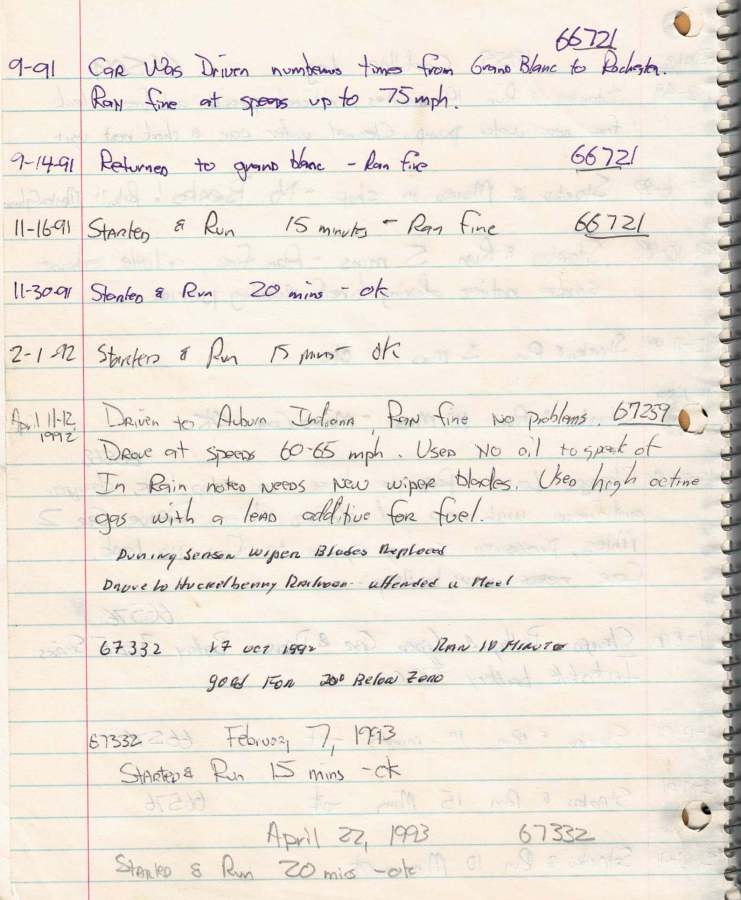 66721
9-91 Car Was Driven numberus times from Grand Blanc to Rochester.
Ran fine at speeds up to 75 mph.
9-14-91 Returned to grand blanc - Ran fire 66721
11-16-91 Started & Run 15 minutes - Ran Fine 66721
11-30-91 Started & Run 20 mins - ok
2-1-92 Started & Run 15 mins ok
April 11-12, 1992 Driven to Auburn Indiana, Ran fine no problems. 67259
Drove at speeds 60-65 mph. Used no oil to speak of
In Rain noted needs new wiper blades. Used high octine
gas with a lead additive for fuel.
During Season Wiper Blades Replaced
Drove to Huckelberry Railroad. attended a Meet
67332 17 Oct 1992 Ran 10 Minute
good For 20° Below Zero
67332 February 7, 1993
Started & Run 15 mins - ok
April 22, 1993 67332
Started & Run 20 mins - ok